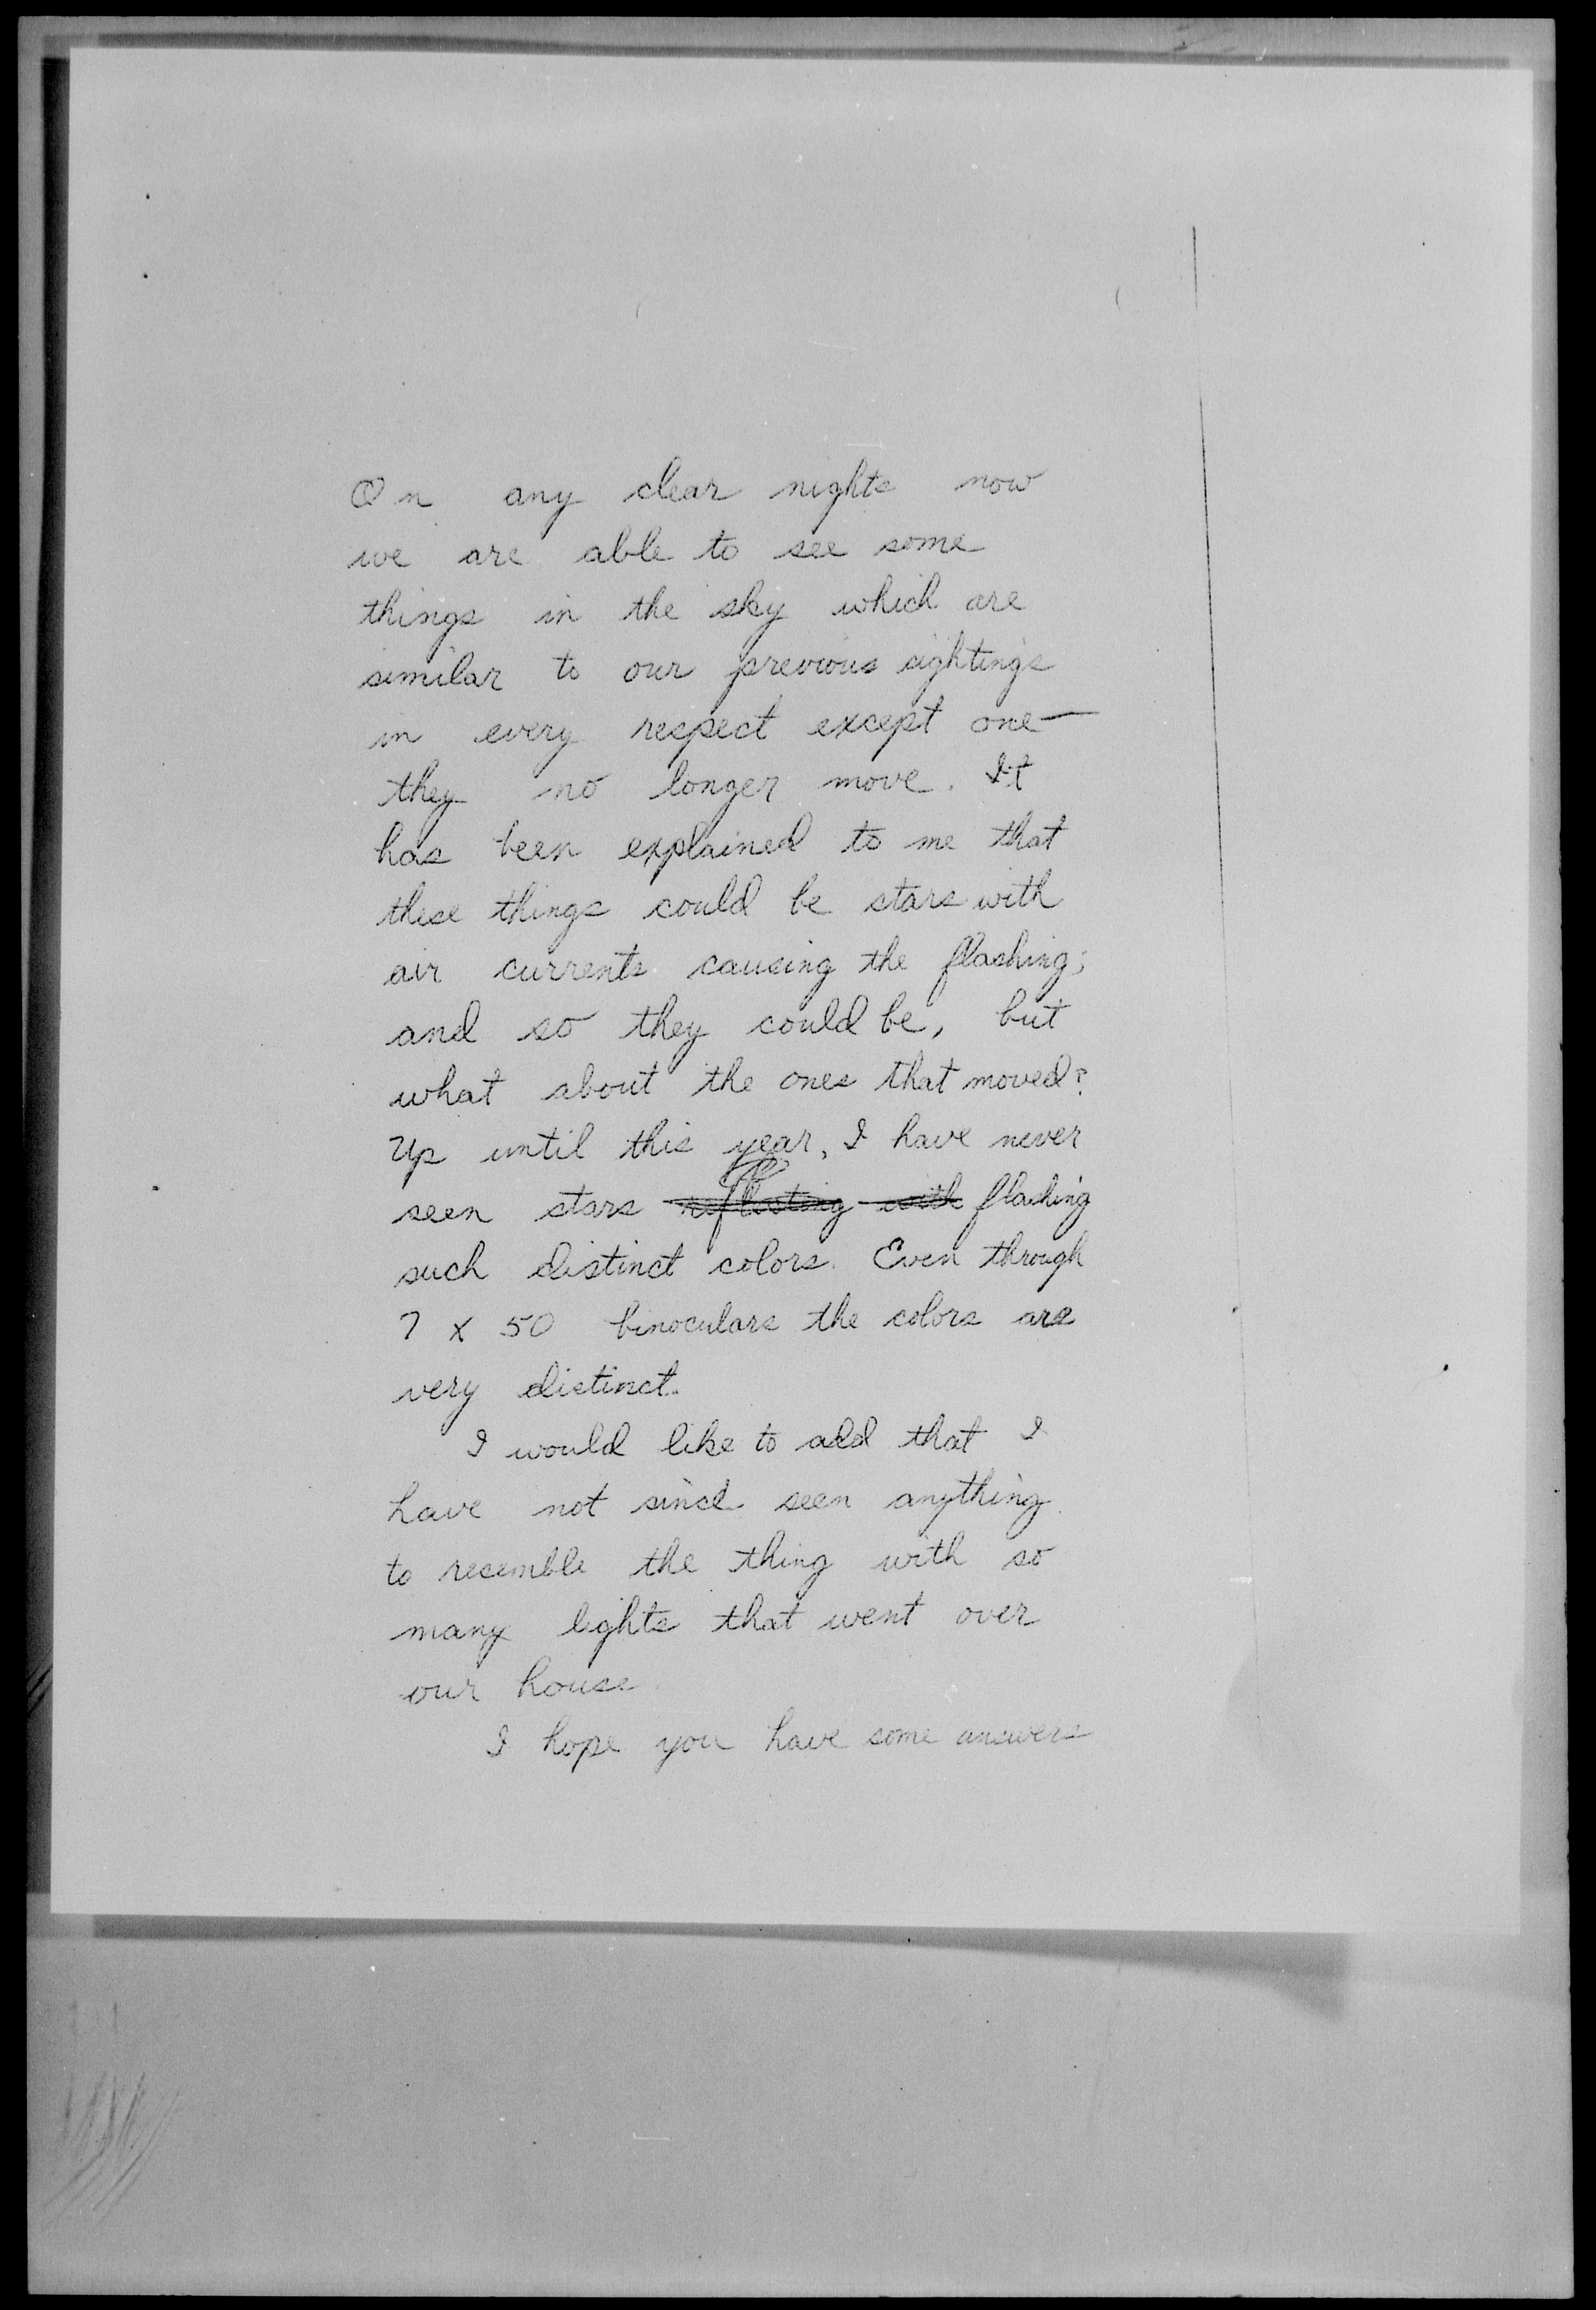 On any clear nights now
we are able to see some
things in the sky which are
similar to our previous sightings
in every respect except one—
they no longer move. It
has been explained to me that
these things could be stars with
air currents causing the flashing;
and so they could be, but
what about the ones that moved?
Up until this year, I have never
seen stars reflecting with flashing
such distinct colors. Even through
7 x 50 binoculars the colors are
very distinct.
I would like to add that I
have not since seen anything
to resemble the thing with so
many lights that went over
our house.
I hope you have some answers